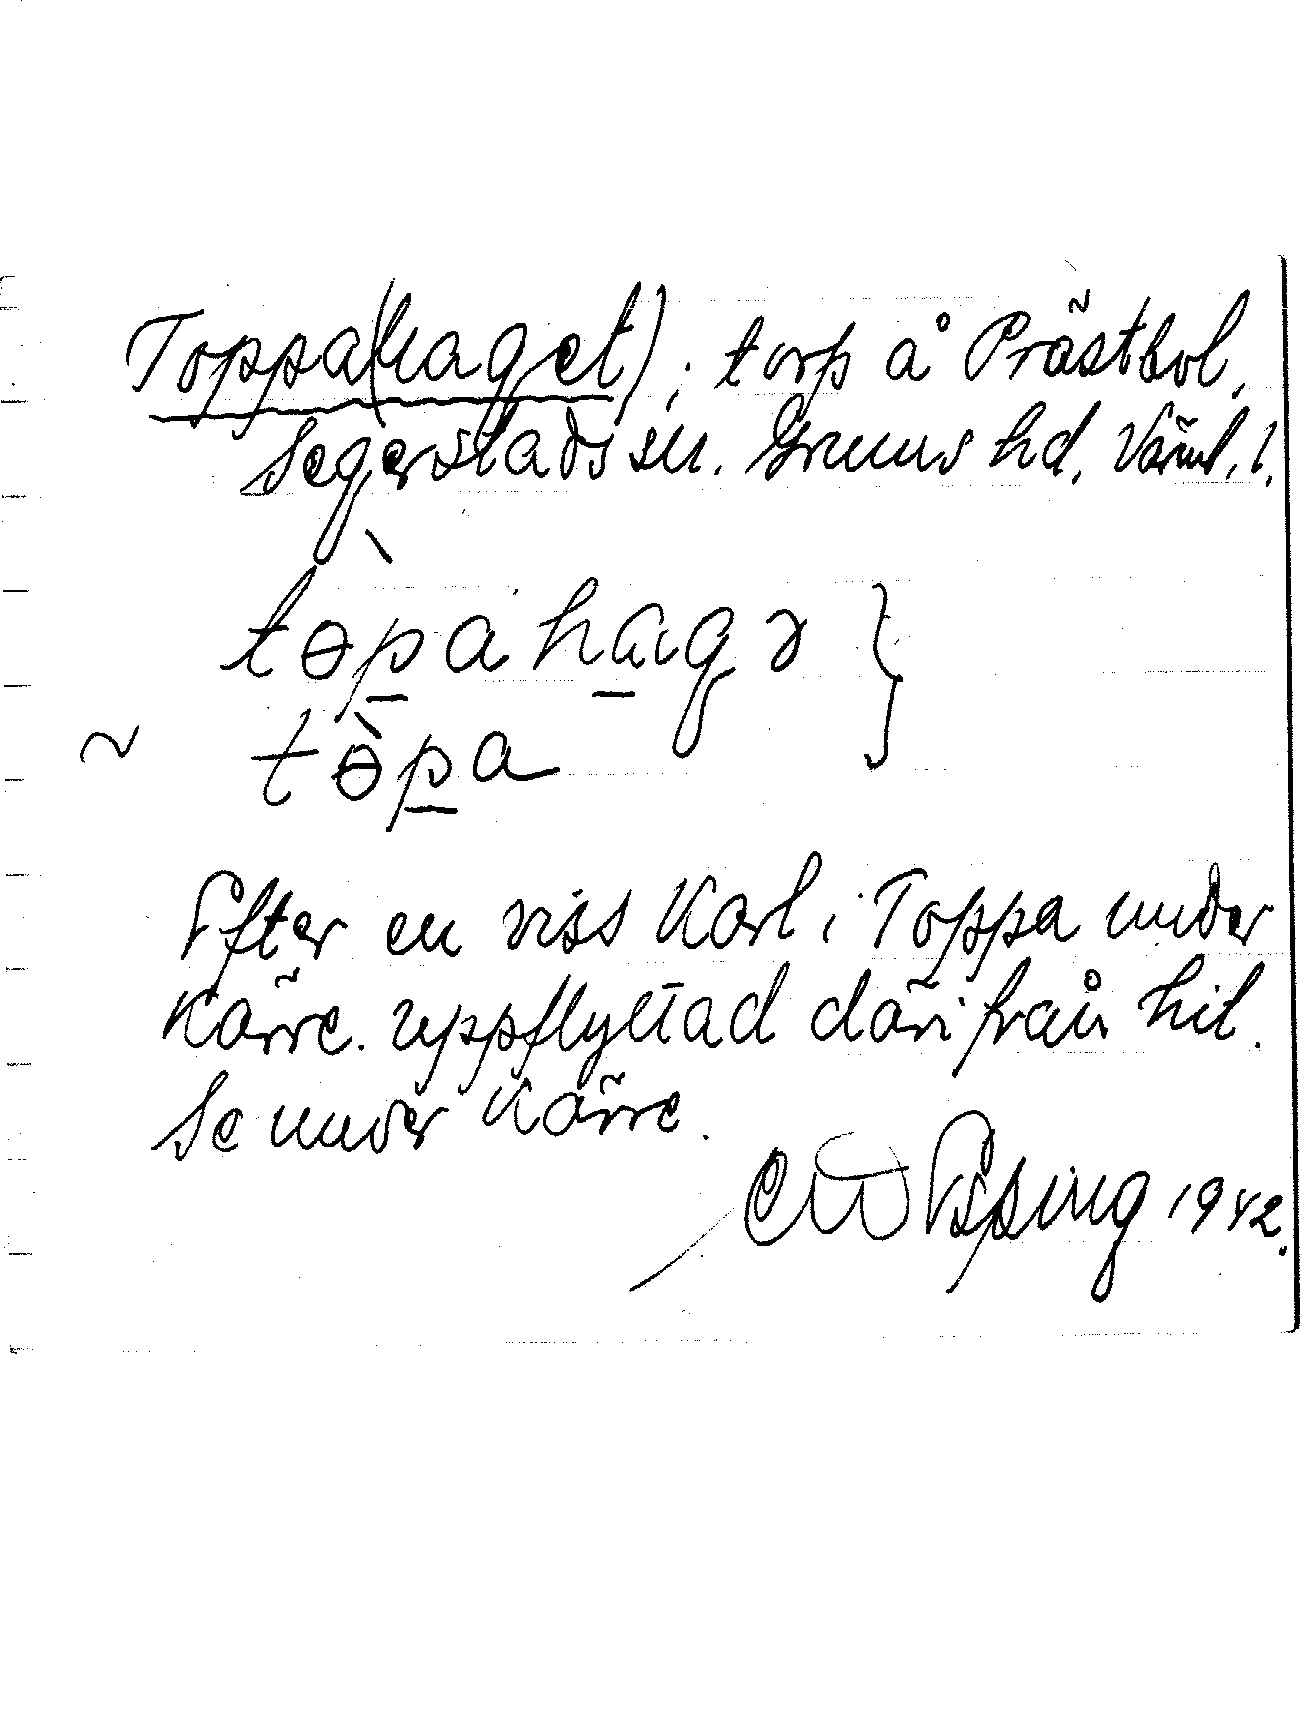 Toppa(haget); torp å Prästbol,
Segerstads sn. Grums hd, Värml. l.
tɵ̀pahagə }
~ tɵ̀pa
Efter en viss Karl i Toppa under
Kärre. uppflyttad därifrån hit.
Se under Kärre.
Esping 1942.